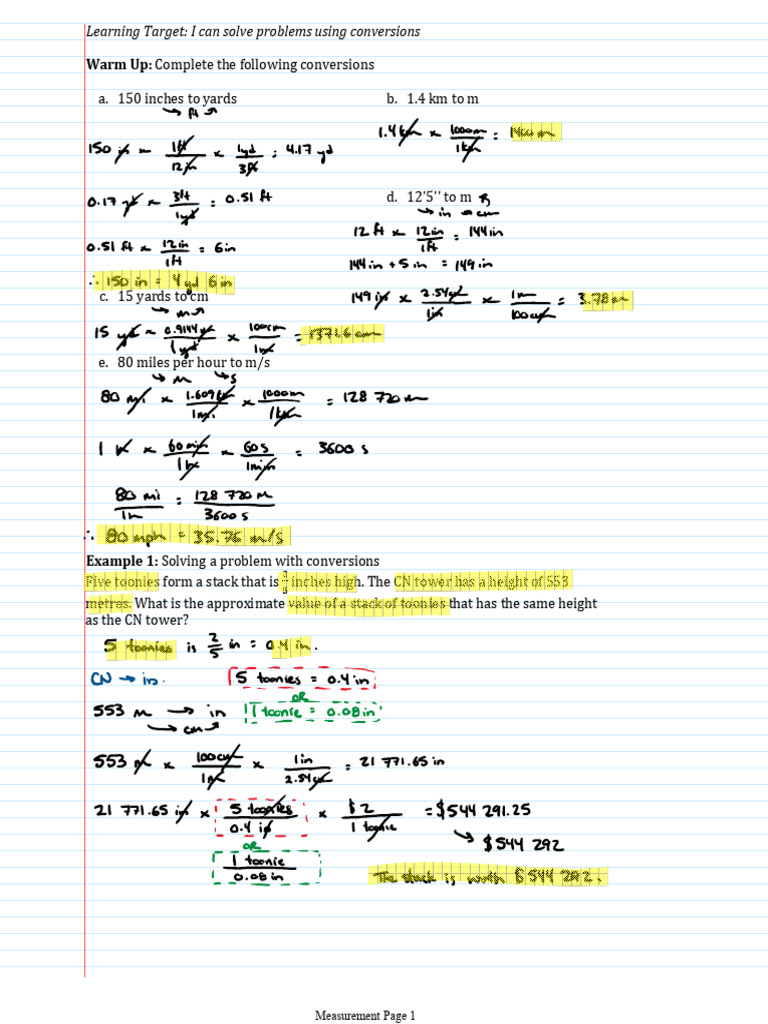 Learning Target: I can solve problems using conversions
Warm Up: Complete the following conversions
a. 150 inches to yards
↪ ft ↗
150 in × 1ft/12in × 1yd/3ft = 4.17 yd
0.17 yd × 3ft/1yd = 0.51 ft
0.51 ft × 12in/1ft = 6in
∴ 150 in = 4 yd 6 in
b. 1.4 km to m
1.4 km × 1000m/1km = 1400 m
d. 12'5'' to m
↪ in → cm
12 ft × 12in/1ft = 144in
144in + 5in = 149in
149in × 2.54cm/1in × 1m/100cm = 3.78m
c. 15 yards to cm
↪ m ↗
15 yd × 0.9144m/1yd × 100cm/1m = 1371.6 cm
e. 80 miles per hour to m/s
↪ m ↪ s
80 mi × 1.609km/1mi × 1000m/1km = 128 720 m
1 hr × 60min/1hr × 60s/1min = 3600 s
80 mi/1h = 128 720 m/3600 s
∴ 80 mph = 35.76 m/s
Example 1: Solving a problem with conversions
Five toonies form a stack that is 2/5 inches high. The CN tower has a height of 553
metres. What is the approximate value of a stack of toonies that has the same height
as the CN tower?
5 toonies is 2/5 in = 0.4 in.
CN → in. 5 toonies = 0.4 in
OR
553 m → in 1 toonie = 0.08 in
↪ cm ↗
553 m × 100cm/1m × 1in/2.54cm = 21 771.65 in
21 771.65 in × 5 toonies/0.4 in × $2/1 toonie = $544 291.25
↪ $544 292
OR
1 toonie/0.08 in
The stack is worth $544 292.
Measurement Page 1